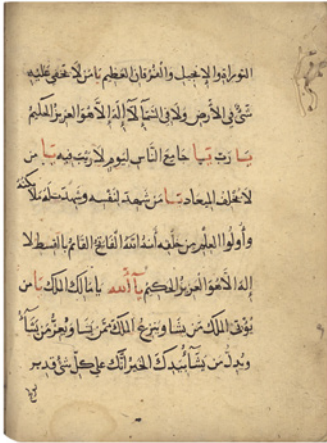 التوراة والإنجيل والفرقان العظيم يا من لا تخفى عليه
شئ في الأرض ولا في السمآء لآ إله إلا هو العزيز الحكيم
يا رب يا جامع الناس ليوم لا ريب فيه يا من
لا يخلف الميعاد يا من شهد لنفسه وشهدت له ملائكته
وأولوا العلم من خلقه أنه الله القائم بالقسط لا
إله إلا هو العزيز الحكيم يآ ألله يا مالك الملك يا من
يؤتى الملك من يشا وينزع الملك ممن يشا ويعز من يشآء
ويذل من يشآ بيدك الخير إنك على كل شئ قدير